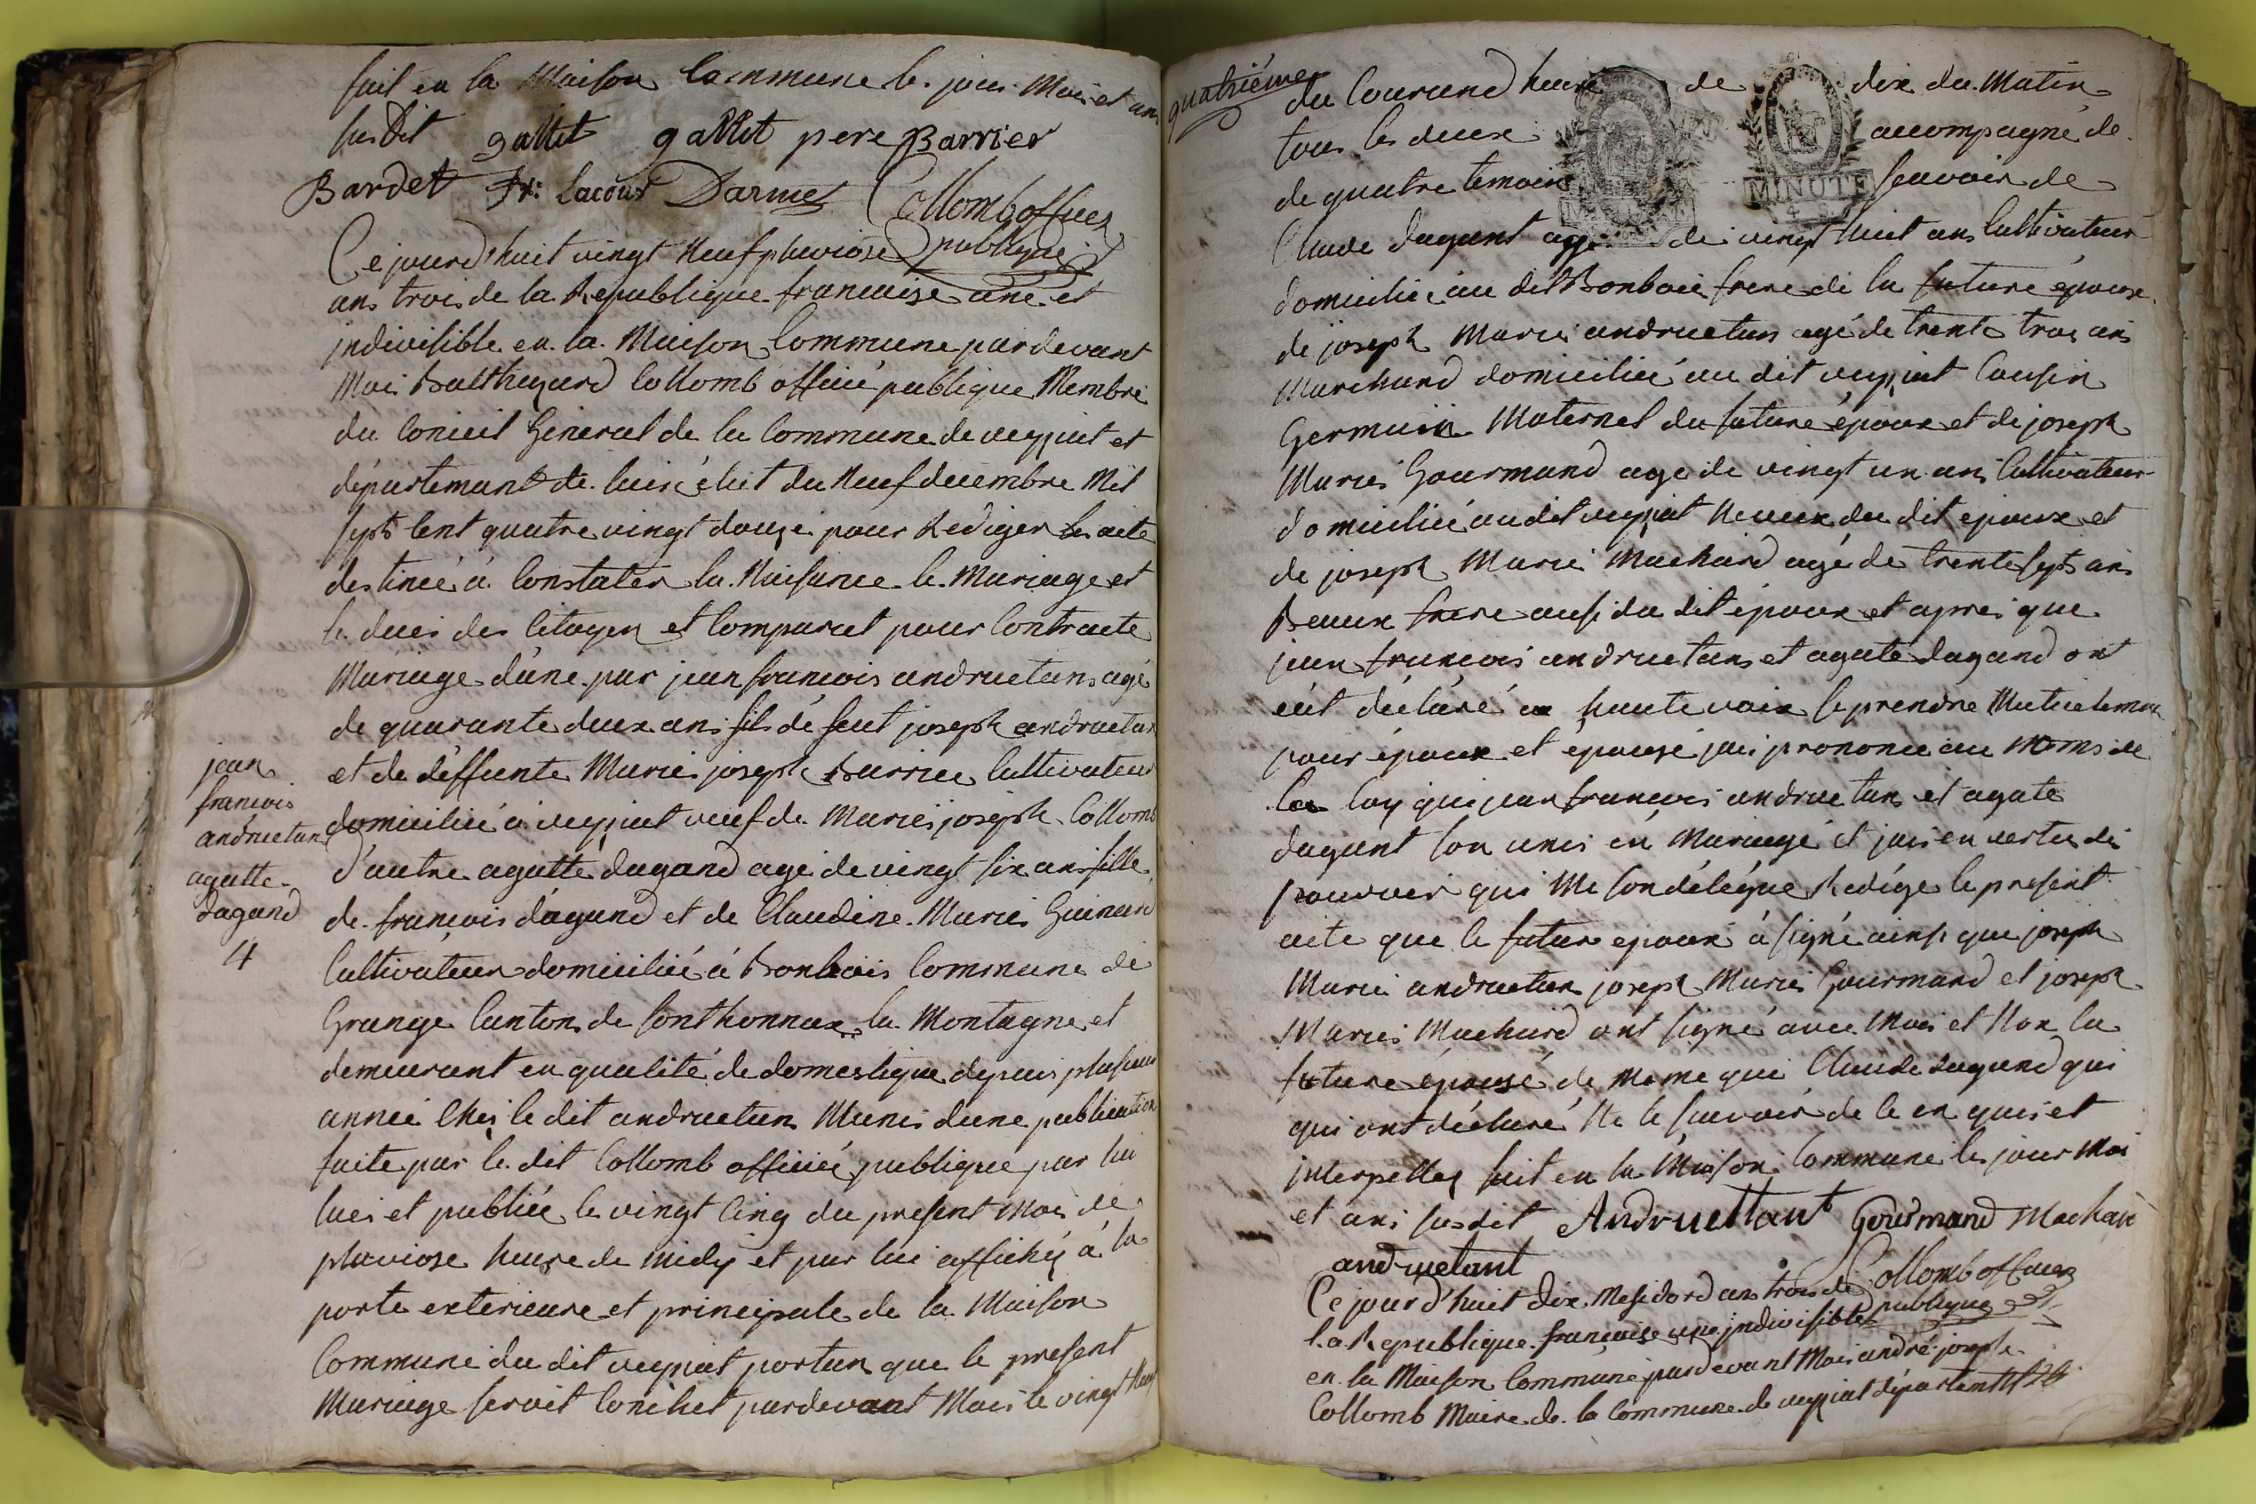 fait en la Maison Commune le jour Mois et an
susdit gallet gallet pere Barrier
Bardet fr: Lacour Darmet Collomb officier
publique
Ce jourd'huit vingt neuf pluviose
ans trois de la Republique francaise une et
jndivisible en la Maison Commune pardevant
Moi Balthazard Collomb officié publique Membre
du Conseil Géneral de la Commune de veyziat et
département de lain élut du Neuf decembre Mil
sept Cent quatre vingt douze pour Rediger les acte
destinée a Constater la Naisance le Mariage et
le deces des Citoyen et Comparut pour Contracte
Mariage d'une par jean francois andruetans agé
de quarante deux ans fils de feut joseph andruetan
et de deffunte Marie joseph Barrier Cultivateur
jean
françois
andruetan
agatte
dagand
4
domicilié a veyziat veuf de Marie joseph Collomb
d'autre agatte dagand agé de vingt six ans fille
de françois dagand et de Claudine Marie Guinard
Cultivateur domicilié à Bonbois Commune de
Grange Canton de Sonthonnax la Montagne et
demeurant en qualité de domestique depuis plusieur
année Chez le dit andruetan Munis d'une publication
faite par le dit Collomb officié publique par lui
lues et publiée le vingt Cinq du present Mois de
pluviose heure de Midy et par lui affichez a la
porte exterieure et principale de la Maison
Commune du dit veyziat portan que le present
Mariage seroit Conclut pardevant Moi le vingt Neuf
quatriéme
du Courand heure de dix du Matin
tous les deux accompagné de
de quatre temoins scavoir de
MINUTE
Claude dagant agé de vingt huit ans Cultivateur
domicilié au dit Bonbois frere de la future épouse
de joseph Marie andruetan agé de trente trois ans
Marchand domicilié au dit veyziat Cousin
Germain Maternel du future époux et de joseph
Marie Gourmand agé de vingt un ans Cultivateur
domicilié au dit veyziat Neveux du dit époux et
de joseph Marie Machard agé de trente sept ans
Beaux frere ausi du dit époux et apres que
jean francois andruetans et agate dagand ont
eut déclaré a haute voix se prendre Mutuelement
pour époux et épouse jai prononcé au Noms de
la loy que jean francois andruetan et agate
dagant son unis en Mariage et jais en vertu des
pouvoir qui Me son délégue Redige le present
acte que le futur époux a signé ainsi que joseph
Marie andruetan joseph Marie Gourmand et joseph
Marie Machard ont signé avec Moi et Non la
future épouse de Meme que Claude dagand qui
qui ont déclaré Ne le scavoir de le en quis et
jnterpellez fait en la Maison Commune les jour Moi
et ans susdit Andruettant Gourmand Machard
andruetant Collomb officier
publique
Ce jourd'huit dix Mesidord ans trois de
la Republique francaise une jndivisible
en la Maison Commune pardevant Moi andré joseph
Collomb Maire de la Commune de veyziat département